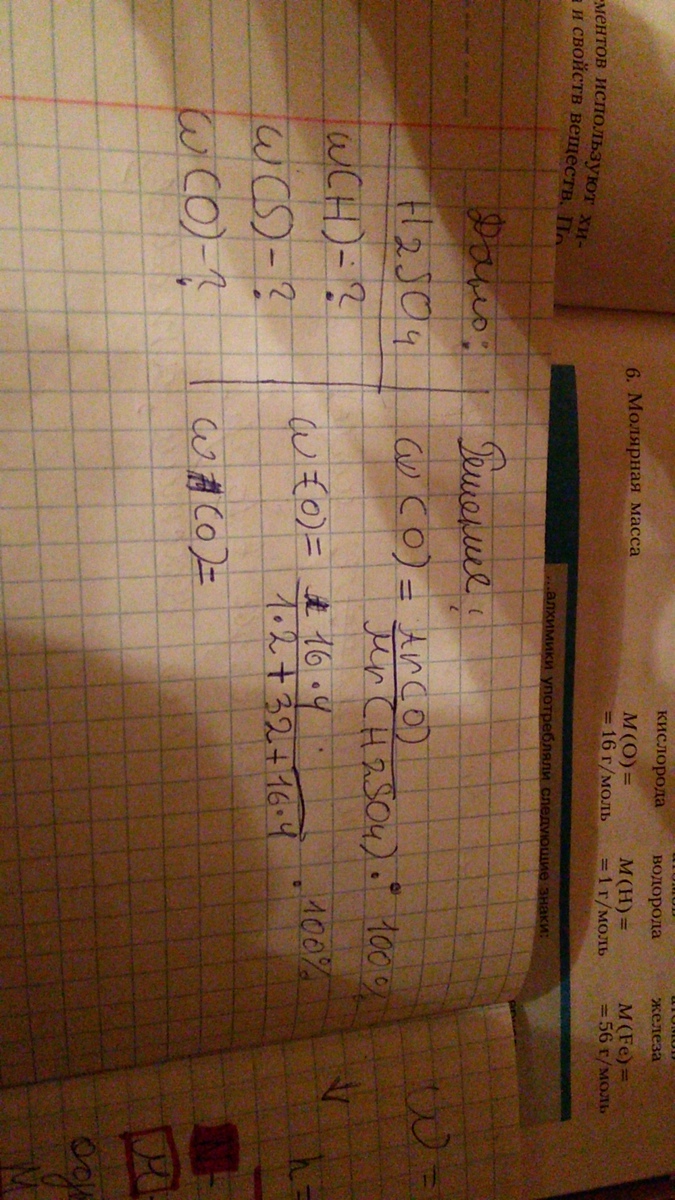 ментов используют хи-
и свойств веществ. По
6. Молярная масса
кислорода
M(O) =
= 16 г/моль
водорода
M(H) =
= 1 г/моль
железа
M(Fe) =
= 56 г/моль
...алхимики употребляли следующие знаки:
Дано:
H2SO4
w(H)-?
w(S)-?
w(O)-?
Решение:
w(O) = Ar(O) / Mr(H2SO4) · 100%
w(O) = 16·4 / 1·2+32+16·4 · 100%
w(O) =
W =
h =
M